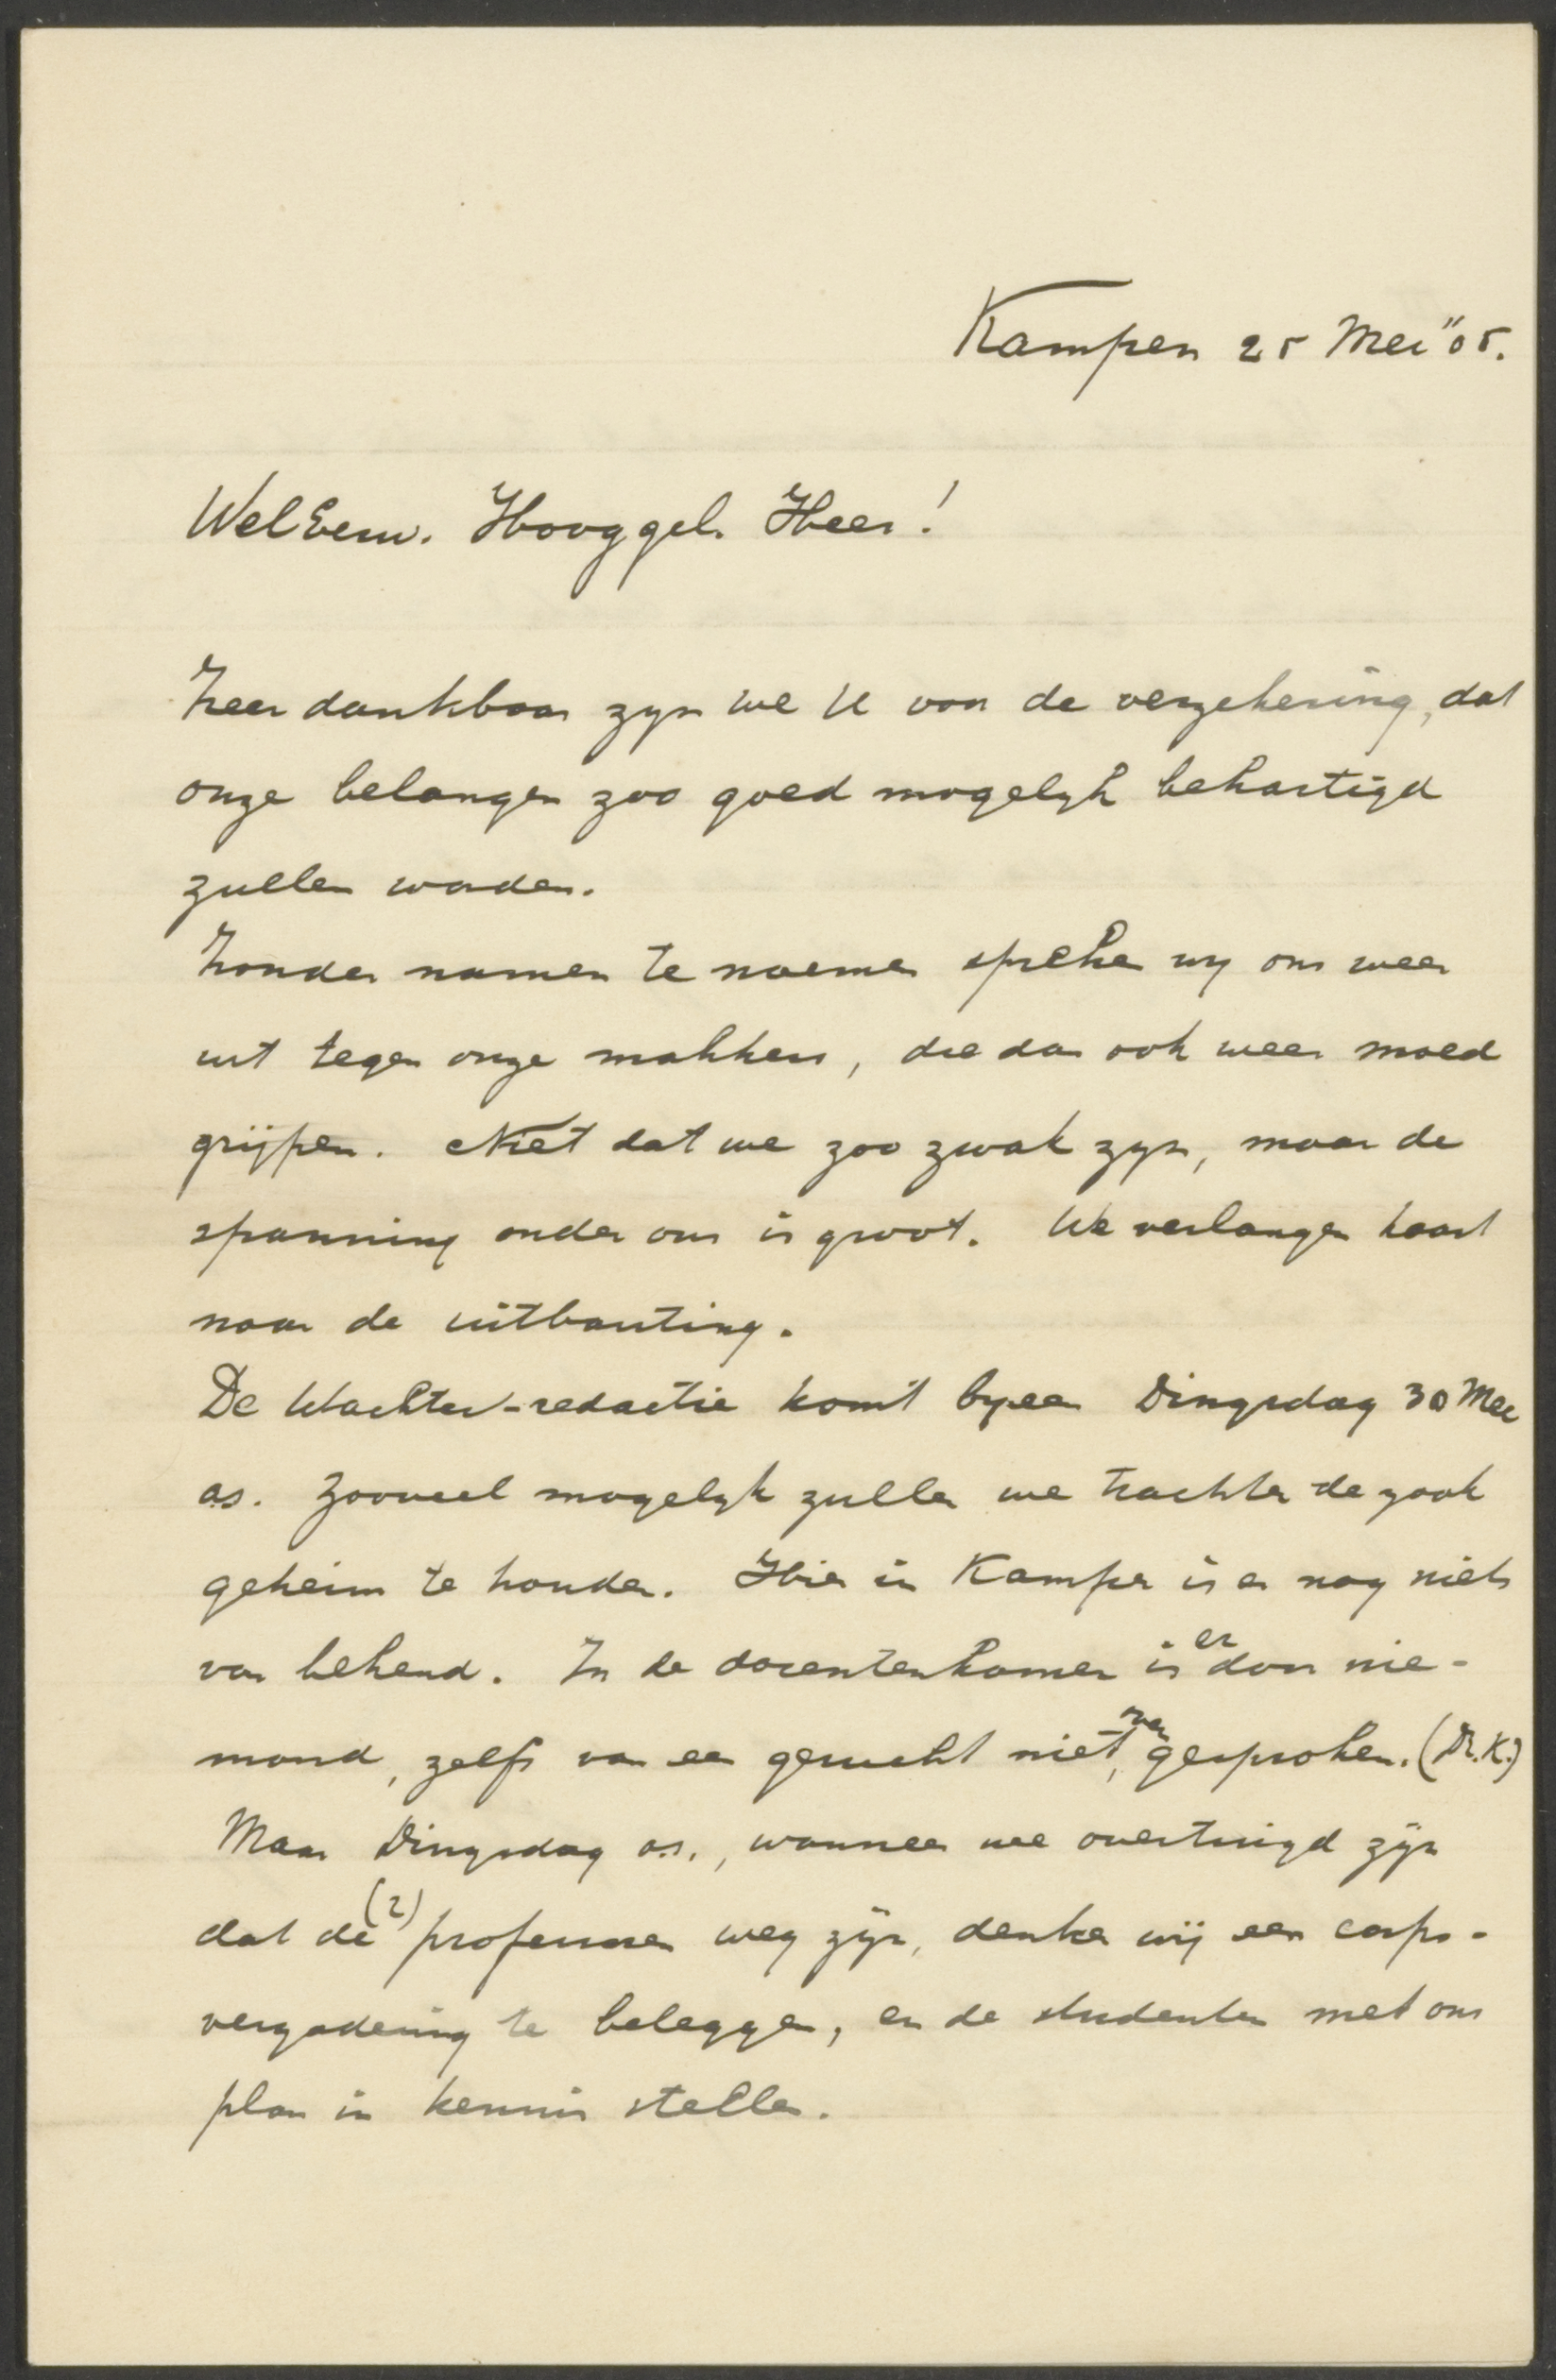 Kampen 25 Mei "05.
WelEerw. Hooggel. Heer!
Zeer dankbaar zyn we U voor de verzekering, dat
onze belangen zoo goed mogelyk behartigd
zullen worden.
Zonder namen te noemen spreken wy ons weer
uit tegen onze makkers, die dan ook weer moed
grijpen. Niet dat we zoo zwak zyn, maar de
spanning onder ons is groot. We verlangen haast
naar de uitbarsting.
De Wachter-redactie komt byeen Dingsdag 30 Mei
as. Zooveel mogelyk zullen we trachten de zaak
geheim te houden. Hier in Kampen is er nog niets
van bekend. In de docentenkamer is er door nie-
mand, zelfs van een gerucht niet, over gesproken. (Dr. K.)
Maar Dingsdag a.s., wanneer we overtuigd zijn
dat de (2) professoren weg zijn, denken wij een corps-
vergadering te beleggen, en de studenten met ons
plan in kennis stellen.